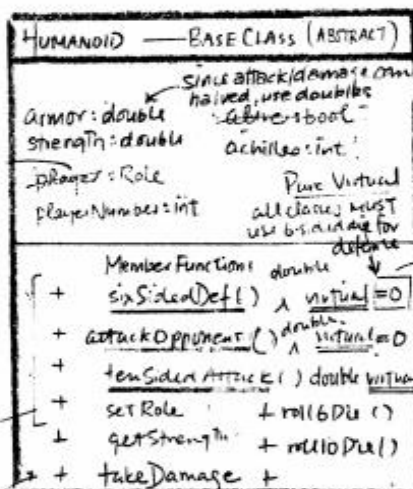 HUMANOID — BASE CLASS (ABSTRACT)
since attack/damage can
halved, use doubles
armor: double
strength: double
achilles: int
player: Role
playerNumber: int
Pure Virtual
all classes MUST
use 6-sided die for
defense
Member Functions
+ sixSidedDef() ^ double virtual = 0
+ attackOpponent() ^ double virtual = 0
+ tenSidedAttack() double virtual
+ setRole + roll6Die()
+ getStrength + roll10Die()
+ takeDamage +